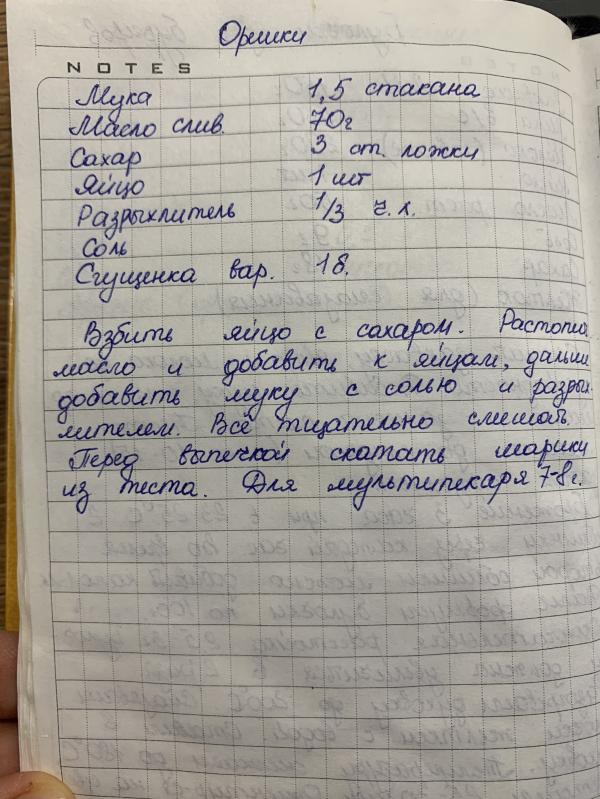 Орешки
NOTES
Мука 1,5 стакана
Масло слив. 70г
Сахар 3 ст. ложки
Яйцо 1 шт
Разрыхлитель 1/3 ч.л.
Соль
Сгущенка вар. 1б.
Взбить яйцо с сахаром. Растопи
масло и добавить к яйцам, дальш
добавить муку с солью и разры
лителем. Всё тщательно смешать.
Перед выпечкой скатать шарики
из теста. Для мультипекаря 7-8г.